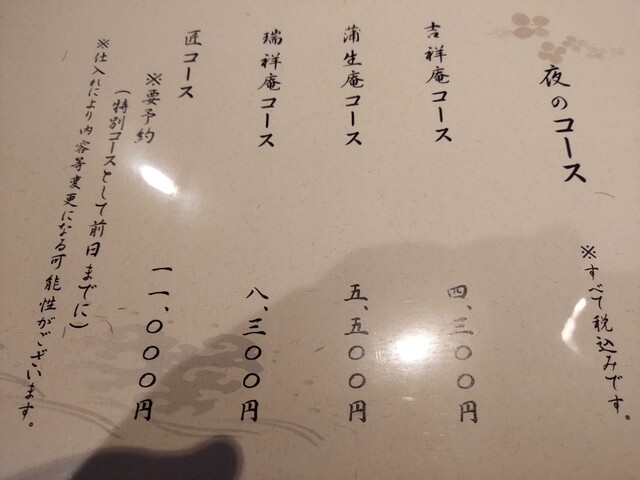 夜のコース
※すべて税込みです。
吉祥庵コース 四、三〇〇円
蒲生庵コース 五、五〇〇円
瑞祥庵コース 八、三〇〇円
匠コース 一一、〇〇〇円
※要予約
(特別コースとして前日までに)
※仕入れにより内容等変更になる可能性がございます。